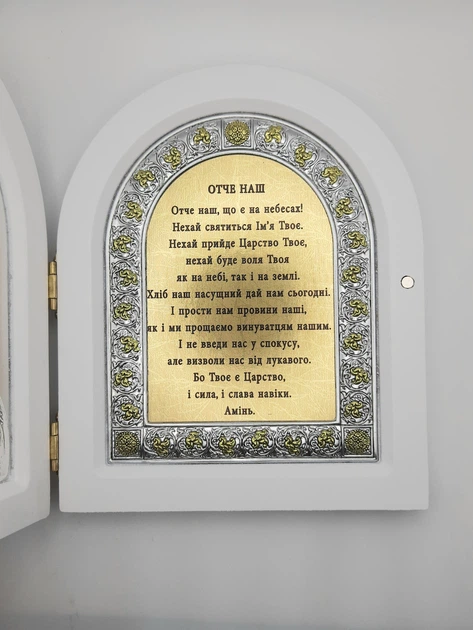 ОТЧЕ НАШ
Отче наш, що є на небесах!
Нехай святиться Ім'я Твоє.
Нехай прийде Царство Твоє,
нехай буде воля Твоя
як на небі, так і на землі.
Хліб наш насущний дай нам сьогодні.
І прости нам провини наші,
як і ми прощаємо винуватцям нашим.
І не введи нас у спокусу,
але визволи нас від лукавого.
Бо Твоє є Царство,
і сила, і слава навіки.
Амінь.